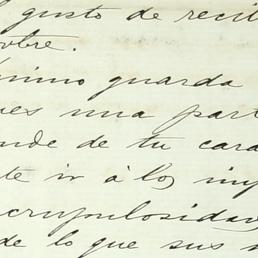 gusto de recib
obre.
nimo guarda
es una part
nde de tu cara
te ir á los im
crupulosidad
de lo que sus